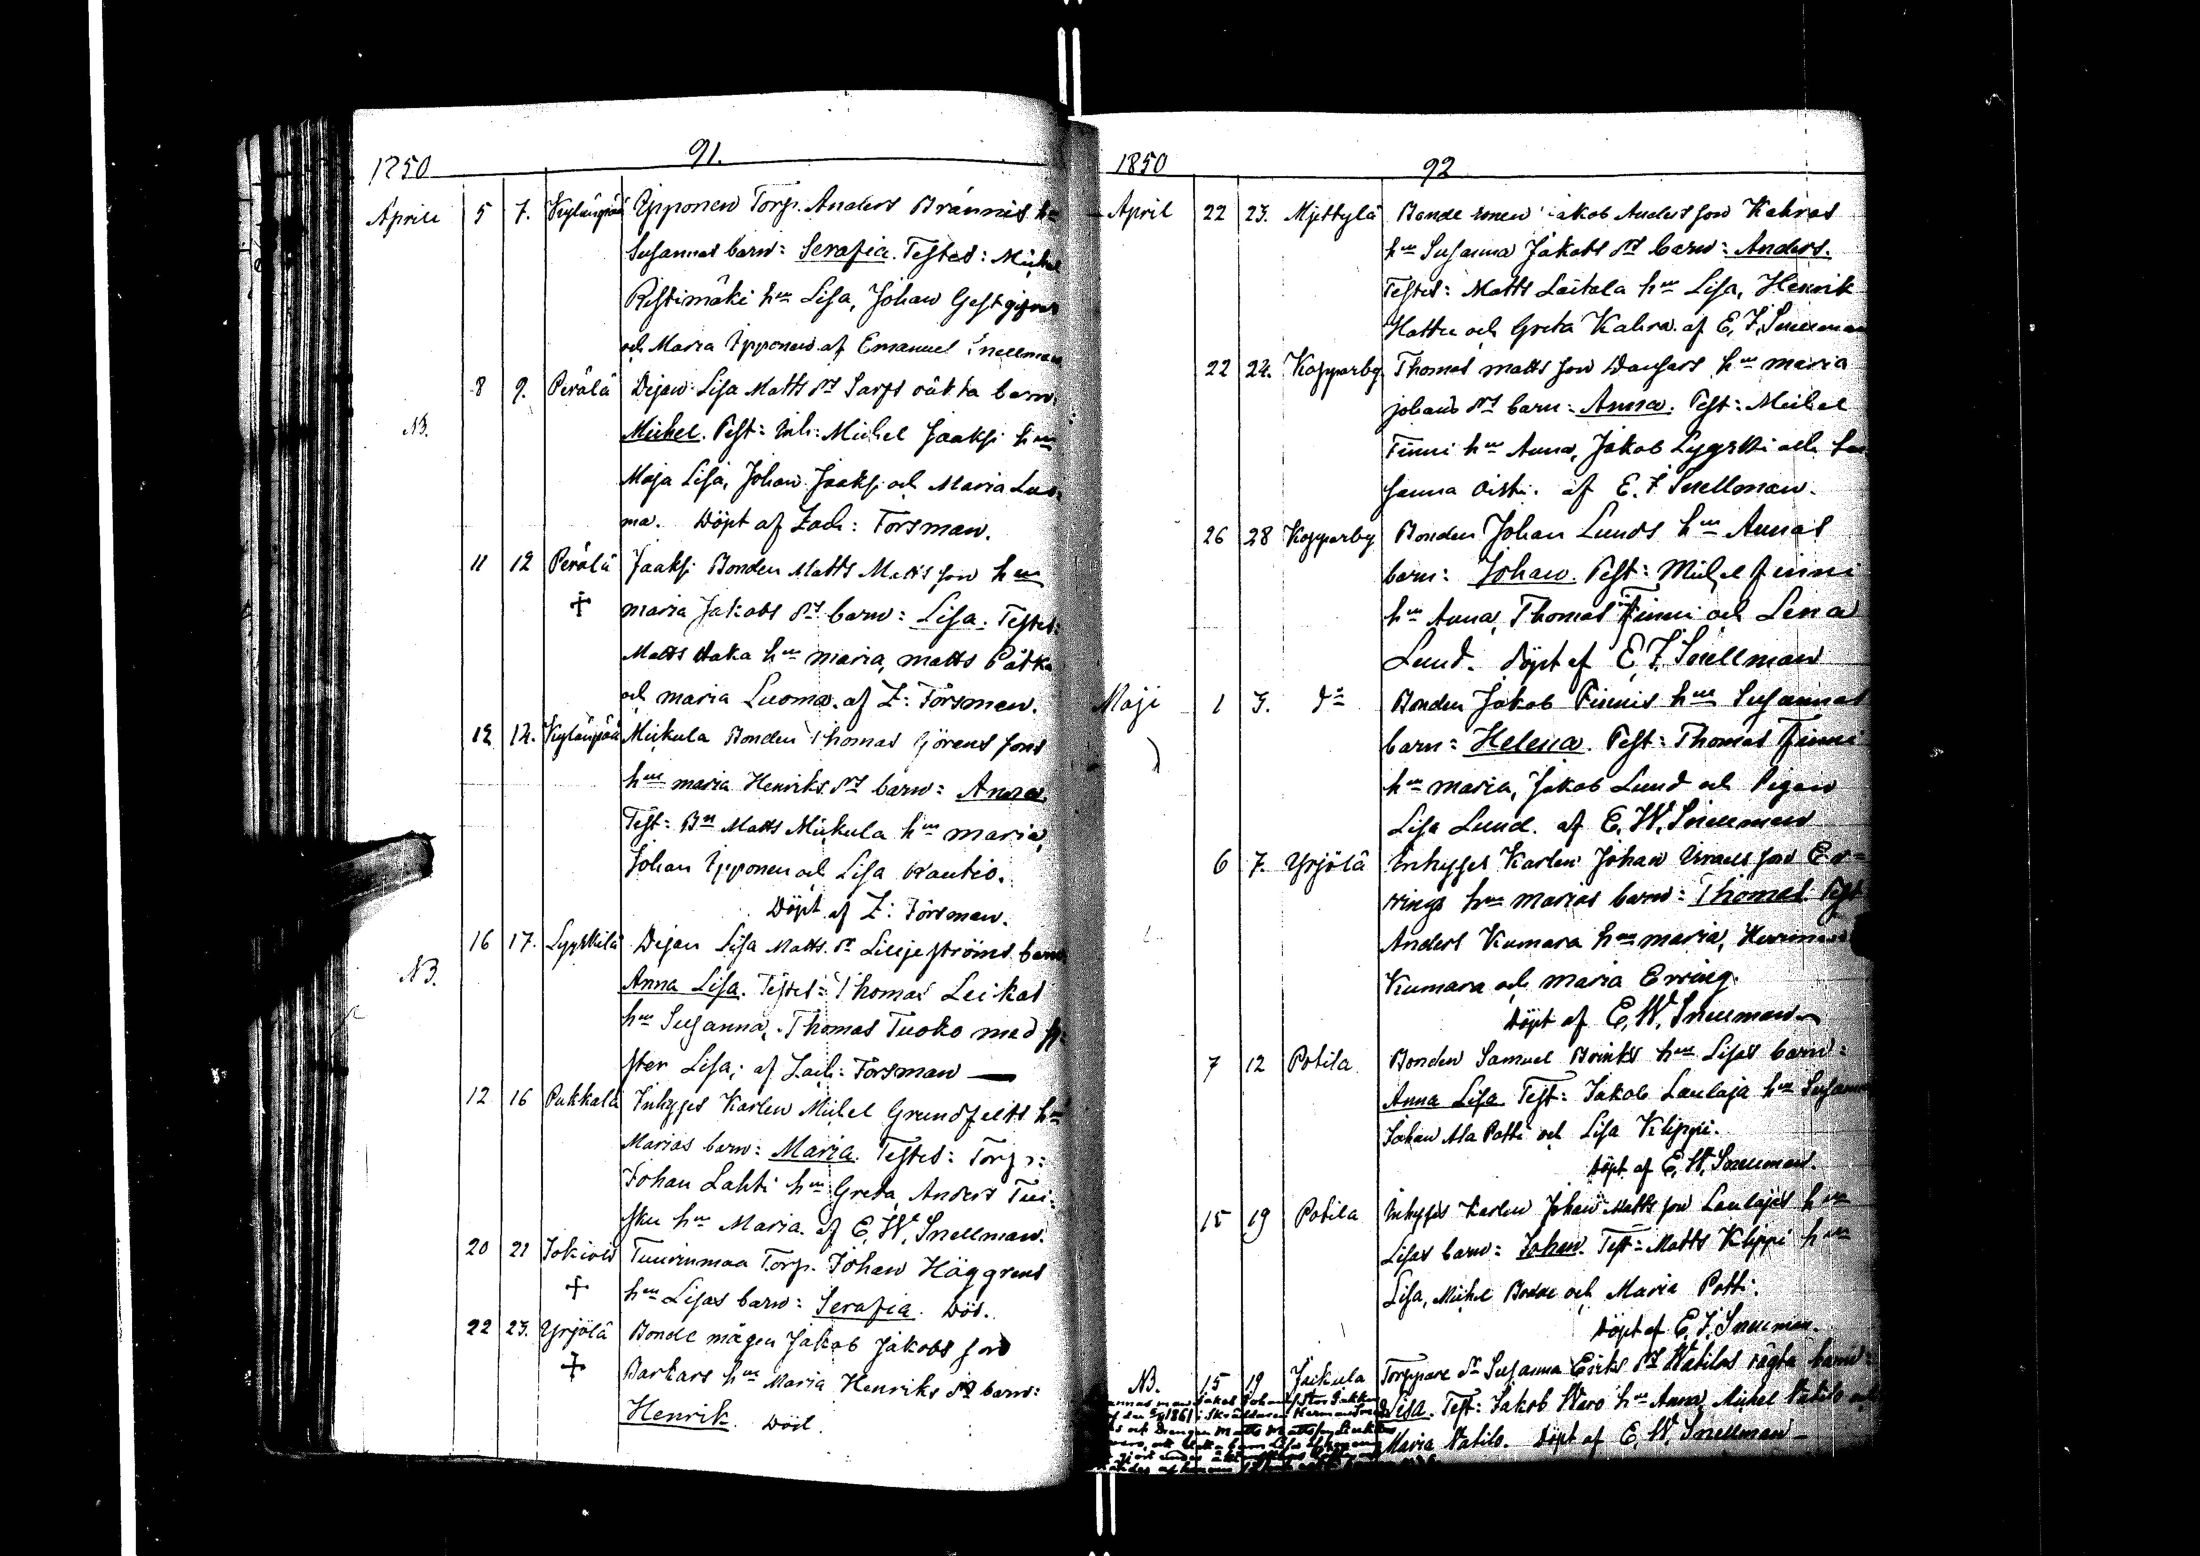 1850 91.
Aprill 5 7. Kyläänpää Ypponen Torp. Anders Brännis hu
Susannas barn: Serafia. Testes: Mickel
Ristimäki hu Lisa, Johan Gestgifvars
och Maria Ypponen. af Emanuel Snellman
8 9. Perälä Pigan Lisa Matts dr Sarfs oäkta barn:
NB. Mickel. Test: Michel Jaaksi hu
Maja Lisa, Johan Jaaksi och Maria Luo-
ma. Döpt af Zach: Forsman.
11 12 Perälä Jaaksi Bonden Matts Matts son hu
+ maria Jakobs dr barn: Lisa. Testes:
Matts Haka hu maria, matts Pätkä
och maria Luoma. af Z: Forsman.
12 14. Kyläänpää Mickula Bonden Thomas Görans sons
hu maria Henriks dr barn: Anna
Test: Bn Matts Mickula hu maria,
Johan Ypponen och Lisa Kautio.
Döpt af Z: Forsman.
16 17. Lyyskilä Pigan Lisa Matts dr Liljeströms barn
NB. Anna Lisa. Testes: Thomas Leikas
hu Susanna, Thomas Tuoko med sy-
ster Lisa; af Zach: Forsman
12 16 Pukkala Inhyses Karlen Mickel Grundfelts hu
Marias barn: Maria. Testes: Torp:
Johan Lahti hu Greta, Anders Tui-
sku hu Maria. af E. W. Snellman.
20 21 Jokiois Tuurinmaa Torp. Johan Häggrens
+ hu Lisas barn: Serafia. Död.
22 23. Yrjölä Bonde mågen Jakob Jakobs son
+ Barkars hu Maria Henriks dr barn:
Henrik. Död.
1850 92
April 22 23. Myttylä Bonde sonen Jakob Anders son Kahras
hu Susanna Jakobs dr barn: Anders.
Testes: Matts Laitala hu Lisa, Henrik
Hattu och Greta Kahra. af E. F. Snellman
22 24. Kopparby Thomas matts son Dansars hu maria
johans dr barn: Anna. Test: Mickel
Finni hu Anna, Jakob Lyyski och Su
sanna Oisti. af E. F. Snellman.
26 28 Kopparby Bonden Johan Lunds hu Annas
barn: Johan. Test: Mickel Finni
hu Anna, Thomas Finni och Lena
Lund. Döpt af E. F. Snellman
Maji 1 3. do Bonden Jakob Finnis hu Susannas
barn: Helena. Test: Thomas Finni
hu maria, Jakob Lund och Pigan
Lisa Lund. af E. W. Snellman
6 7. Yrjölä Inhyses Karlen Johan Israels son Er-
rings hu marias barn: Thomas. Test
Anders Kumara hu maria, Herrman
Kumara och maria Erring.
Döpt af E. W. Snellman
7 12 Potila Bonden Samuel Brinks hu Lisas barn:
Anna Lisa. Test: Jakob Laulaja hu Susanna
Johan Ala Potti och Lisa Klippi.
Döpt af E. W. Snellman.
15 19 Potila Inhyses Karlen Johan Matts son Laulajas hu
Lisas barn: Johan. Test: Matts Klippi hu
Lisa, Mickel Bodde och Maria Potti.
Döpt af E. F. Snellman.
NB. 15 19 Jäckula Torppare dr Susanna Eriks dr Watilos oägta barn:
Lisa. Test: Jakob Waro hu Anna, Mickel Watilo och
Maria Watilo. Döpt af E. W. Snellman